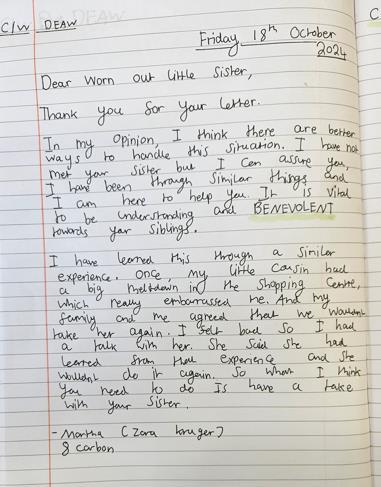 C/W DEAW
Friday 18th October
2024
Dear Worn out little Sister,
Thank you for your letter.
In my opinion, I think there are better
ways to handle this situation. I have not
met your sister but I can assure you,
I have been through similar things and
I am here to help you. It is vital
to be understanding and BENEVOLENT
towards your siblings.
I have learned this through a similar
experience. Once, my little cousin had
a big meltdown in the shopping centre,
which really embarrassed me. And my
family and me agreed that we wouldnt
take her again. I felt bad so I had
a talk with her. She said she had
learned from that experience and she
wouldnt do it again. So what I think
you need to do is have a take
with your sister.
- Martha (Zara Kruger)
8 Carbon
C